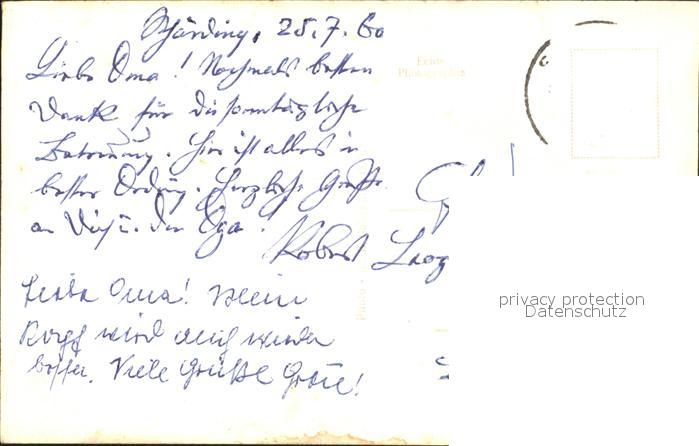 Schärding, 25.7.60
Liebe Oma! Nochmals besten
Dank für die sonntägliche
Betreuung. Hier ist alles in
bester Ordng. Herzliche Grüße
an Dich u. den Opa.
Robert
Liebe Oma! Mein
wird auch wieder
besser. Viele Grüße
Echte
Photographie
privacy protection
Datenschutz